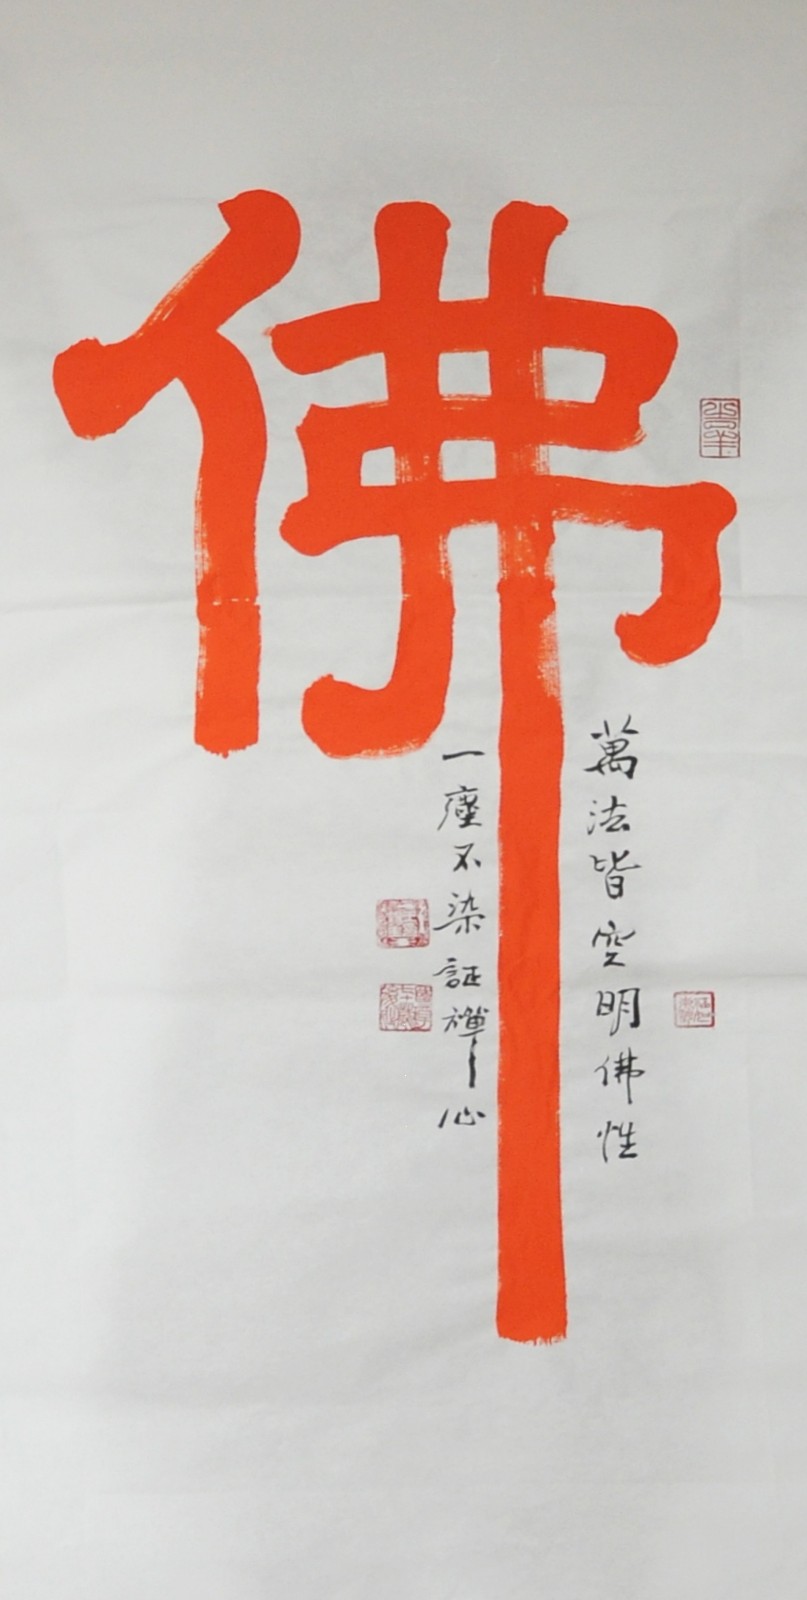 佛
萬法皆空明佛性
一塵不染証禪心